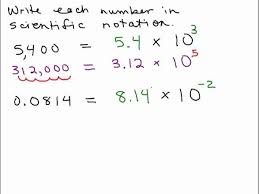 Write each number in
scientific notation.
5,400 = 5.4 × 10³
312,000 = 3.12 × 10⁵
0.0814 = 8.14 × 10⁻²